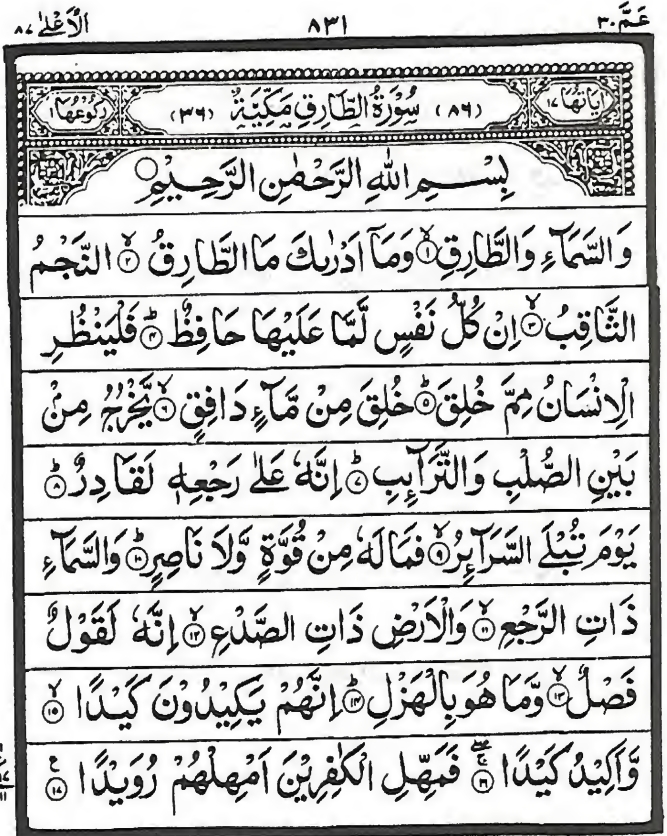 عَمَّ ٣٠ ٨٣١ الْاَعْلٰى ٨٧
اٰيَاتُهَا ١٧ (٨٦) سُوْرَةُ الطَّارِقِ مَكِّيَّةٌ (٣٦) رُكُوْعُهَا ١
بِسْمِ اللهِ الرَّحْمٰنِ الرَّحِيْمِ
وَالسَّمَآءِ وَالطَّارِقِ ۙ‏﴿۱﴾ وَمَاۤ اَدْرٰىكَ مَا الطَّارِقُ ۙ‏﴿۲﴾ النَّجْمُ
الثَّاقِبُ ۙ‏﴿۳﴾ اِنْ كُلُّ نَفْسٍ لَّمَّا عَلَيْهَا حَافِظٌ ؕ‏﴿۴﴾ فَلْيَنْظُرِ
الْاِنْسَانُ مِمَّ خُلِقَ ؕ‏﴿۵﴾ خُلِقَ مِنْ مَّآءٍ دَافِقٍ ۙ‏﴿۶﴾ يَّخْرُجُ مِنْۢ
بَيْنِ الصُّلْبِ وَالتَّرَآئِبِ ؕ‏﴿۷﴾ اِنَّهٗ عَلٰى رَجْعِهٖ لَقَادِرٌ ؕ‏﴿۸﴾
يَوْمَ تُبْلَى السَّرَآئِرُ ۙ‏﴿۹﴾ فَمَا لَهٗ مِنْ قُوَّةٍ وَّلَا نَاصِرٍ ؕ‏﴿۱۰﴾ وَالسَّمَآءِ
ذَاتِ الرَّجْعِ ۙ‏﴿۱۱﴾ وَالْاَرْضِ ذَاتِ الصَّدْعِ ۙ‏﴿۱۲﴾ اِنَّهٗ لَقَوْلٌ
فَصْلٌ ۙ‏﴿۱۳﴾ وَّمَا هُوَ بِالْهَزْلِ ؕ‏﴿۱۴﴾ اِنَّهُمْ يَكِيْدُوْنَ كَيْدًا ۙ‏﴿۱۵﴾
وَّاَكِيْدُ كَيْدًا ۚۖ‏﴿۱۶﴾ فَمَهِّلِ الْكٰفِرِيْنَ اَمْهِلْهُمْ رُوَيْدًا ﴿۱۷﴾ ع